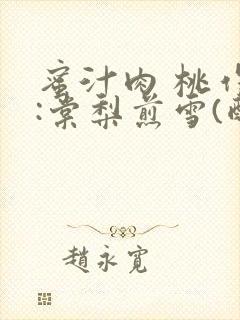 蜜汁肉桃作
:棠梨煎雪(酥
趙永寬